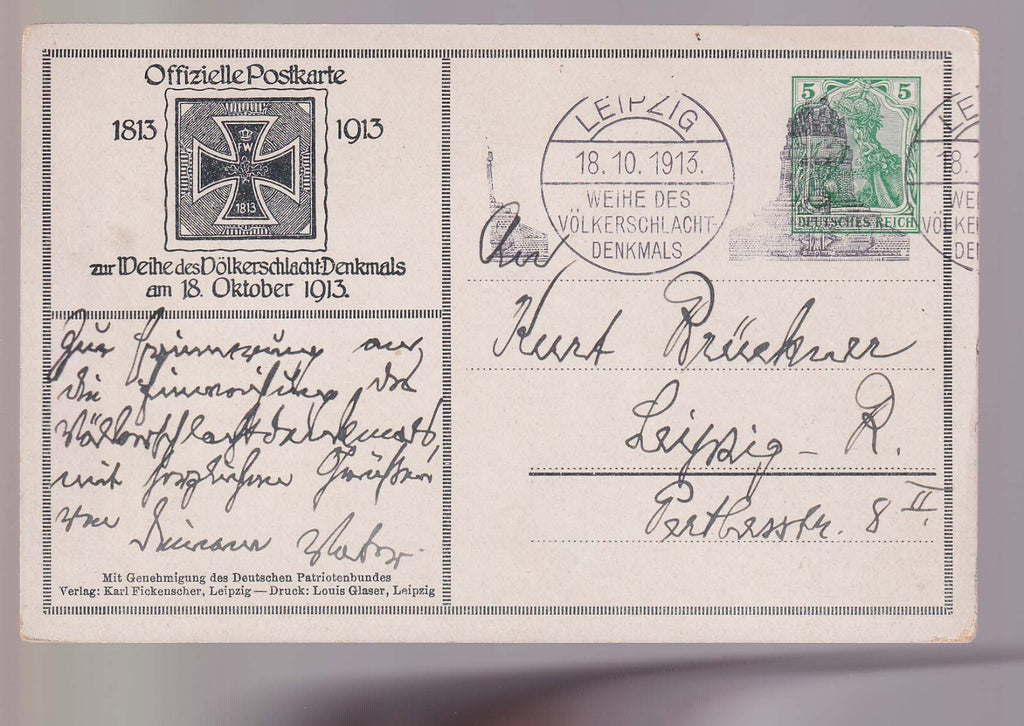 Offizielle Postkarte
1813 1913
FW
1813
zur Weihe des Völkerschlacht-Denkmals
am 18. Oktober 1913.
Zur Erinnerung an
die Einweihung des
Völkerschlachtdenkmals,
mit herzlichen Grüßen
von Deinem Vater.
Mit Genehmigung des Deutschen Patriotenbundes
Verlag: Karl Fickenscher, Leipzig — Druck: Louis Glaser, Leipzig
LEIPZIG
18. 10. 1913.
WEIHE DES
VÖLKERSCHLACHT-
DENKMALS
5 5
DEUTSCHES REICH
LE
18.
WE
VÖLKE
DE
An
Kurt Brückner
Leipzig – R.
8 II.